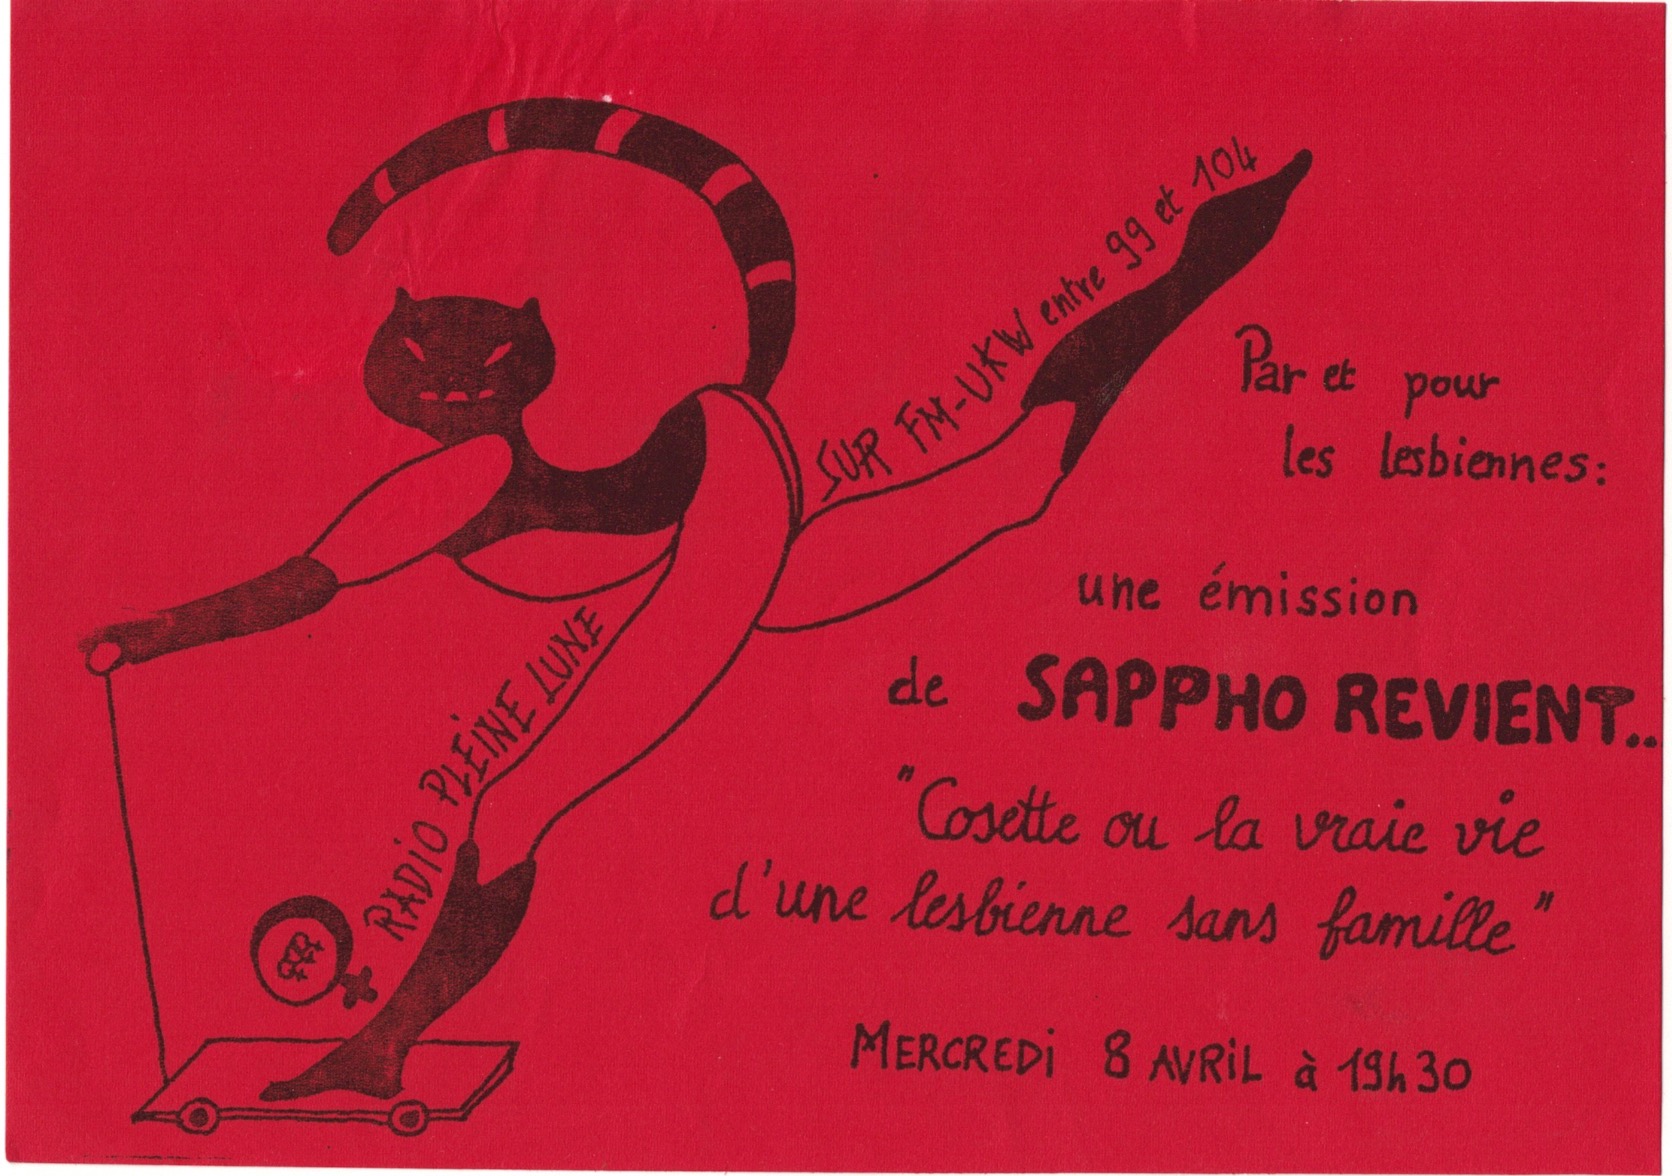 SUR FM-UKW entre 99 et 104
Par et pour
les lesbiennes:
une émission
de SAPPHO REVIENT..
"Cosette ou la vraie vie
d'une lesbienne sans famille"
RADIO PLEINE LUNE
MERCREDI 8 AVRIL à 19h30